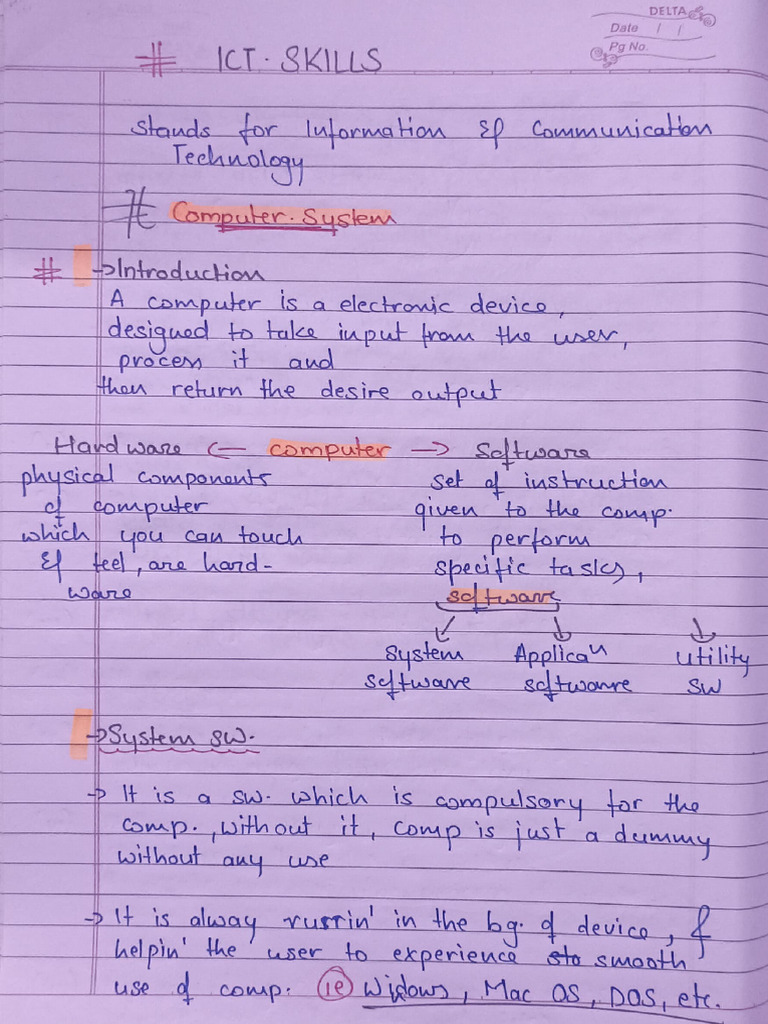 DELTA
Date / /
Pg No.
# ICT. SKILLS
Stands for Information & Communication
Technology
# Computer. System
# →Introduction
A computer is a electronic device,
designed to take input from the user,
process it and
then return the desire output
Hardware ← computer → Software
physical components
of computer
which you can touch
& feel, are hard-
ware
set of instruction
given to the comp.
to perform
specific tasks,
software
System Applicaⁿ utility
software software sw
→System sw.
→ It is a sw. which is compulsory for the
comp., without it, comp is just a dummy
without any use
→ It is alway runnin' in the bg. of device, &
helpin' the user to experience smooth
use of comp. ie Widows, Mac OS, DOS, etc.